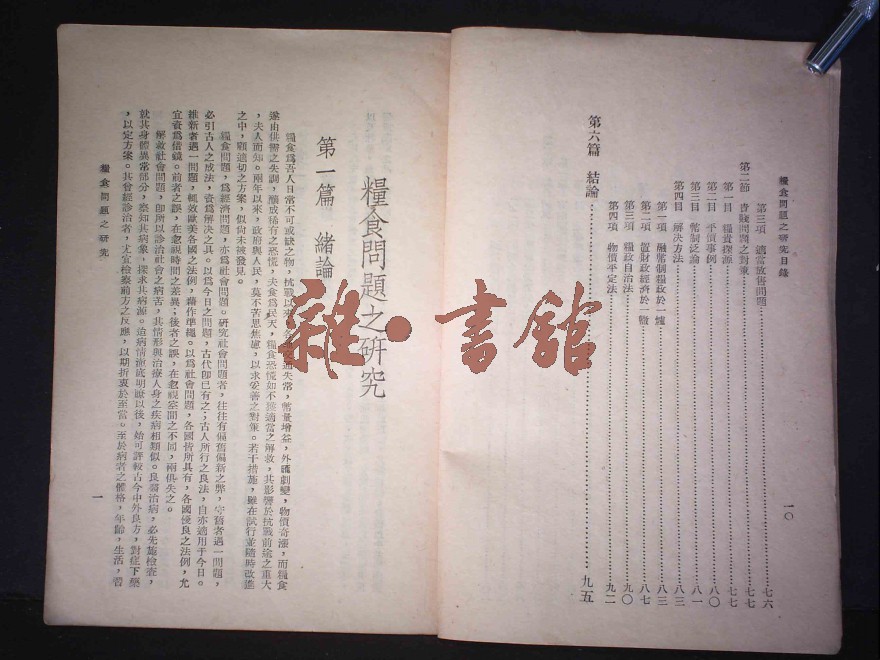 糧食問題之研究目錄
第三項　適當放售問題……七六
第二節　貴賤問題之對策……七七
第一目　糧貴探源……七七
第二目　平價事例……八〇
第三目　幣制泛論……八一
第四目　解決方法……八三
第一項　融幣制糧政於一爐……八三
第二項　置財政經濟於一轍……八七
第三項　糧政自治法……九〇
第四項　物價平定法……九二
第六篇　結論……九五
一〇
糧食問題之研究
第一篇　緒論
糧食為吾人日常不可或缺之物，抗戰以來，各　　通失常，幣量增益，外匯劇變，物價奇漲，而糧食
遂由供需之失調，釀成稀有之恐慌，夫食為民天，糧食恐慌如不獲適當之解救，其影響於抗戰前途之重大
，夫人而知。兩年以來，政府與人民，莫不苦思焦慮，以求妥善之對策。若干措施，雖在試行並隨時改進
之中，顧適切之方案，似尚未被發見。
糧食問題，為經濟問題，亦為社會問題。研究社會問題者，往往有偏舊偏新之弊，守舊者遇一問題，
必引古人之成法，資為解決之具。以為今日之問題，古代即已有之；古人所行之良法，自亦適用于今日。
維新者遇一問題，輒效歐美各國之法例，藉作準繩。以為社會問題，各國皆所具有，各國優良之法例，尤
宜資為借鏡。前者之誤，在忽視時間之差異；後者之誤，在忽視空間之不同，兩俱失之。
解救社會問題，即所以診治社會之病苦，其情形與治療人身之疾病相類似。良醫治病，必先施檢查，
就其身體異常部分，察知其病象，探求其病源。迨病情澈底明瞭以後，始可評較古今中外良方，對症下藥
，以定方案。其曾經診治者，尤宜檢察前方之反應，以期折衷於至當。至於病者之體格，年齡，生活，習
糧食問題之研究
一
雜·書館